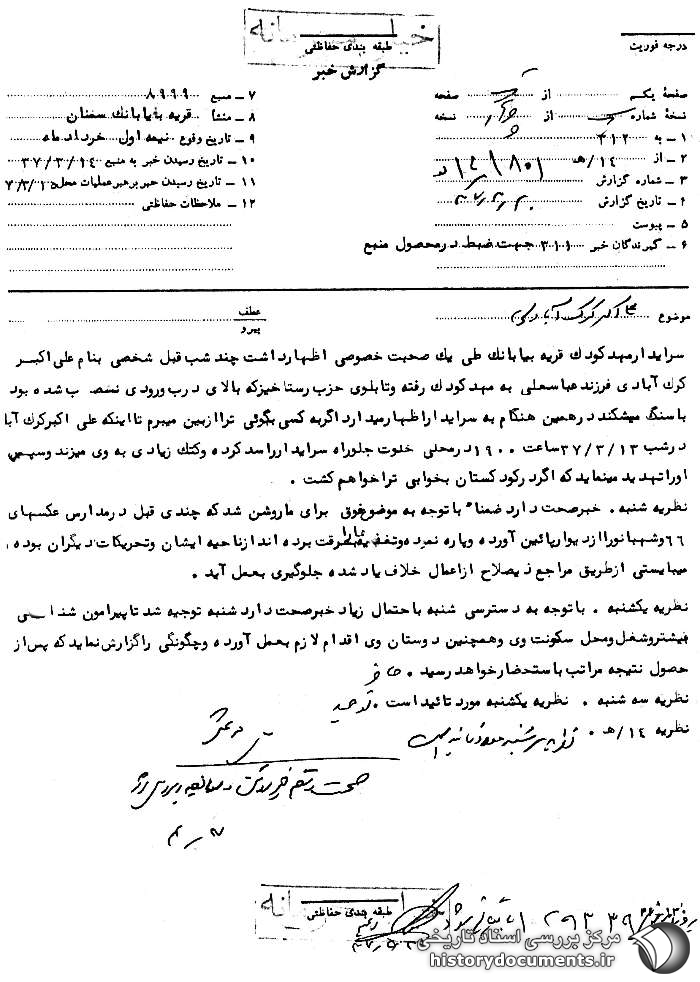 خیلی محرمانه
طبقه بندی حفاظتی
گزارش خبر
درجه فوریت
صفحهٔ یک از صفحه
نسخهٔ شماره از نسخه
۱ – به ۳۱۲
۲ – از ۱۴/هـ
۳ – شماره گزارش
۴ – تاریخ گزارش
۵ – پیوست
۶ – گیرندگان خبر ۳۱۱ جهت ضبط در محصول منبع
۷ – منبع ۸۹۹۹
۸ – منشأ قریه بیابانک سمنان
۹ – تاریخ وقوع نیمه اول خرداد ماه
۱۰ – تاریخ رسیدن خبر به منبع ۳۷/۳/۱۴
۱۱ – تاریخ رسیدن خبر برهبر عملیات محل
۱۲ – ملاحظات حفاظتی
موضوع علی اکبر کرک آبادی
عطف
پیرو
سرایدار مهد کودک قریه بیابانک طی یک صحبت خصوصی اظهار داشت چند شب قبل شخصی بنام علی اکبر
کرک آبادی فرزند عباسعلی به مهد کودک رفته و تابلوی حزب رستاخیز که بالای درب ورودی نصب شده بود
با سنگ میشکند در همین هنگام به سرایدار اظهار میدارد اگر به کسی بگوئی ترا از بین میبرم تا اینکه علی اکبر کرک آبا
در شب ۳۷/۳/۱۳ ساعت ۱۹۰۰ در محلی خلوت جلو راه سرایدار را سد کرده و کتک زیادی به وی میزند و سپس
او را تهدید مینماید که اگر در کودکستان بخوابی ترا خواهم کشت .
نظریه شنبه . خبر صحت دارد ضمناً با توجه به موضوع فوق برای ما روشن شد که چندی قبل در مدارس عکسهای
۶۶ و شهبانو را از دیوار پائین آورده و پاره نموده و تعدادی را بسرقت برده اند از ناحیه ایشان و تحریکات دیگران بوده ،
میبایستی از طریق مراجع ذیصلاح از اعمال خلاف یاد شده جلوگیری بعمل آید .
نظریه یکشنبه . با توجه به دسترسی شنبه باحتمال زیاد خبر صحت دارد شنبه توجیه شد تا پیرامون شناسائی
بیشتر و شغل و محل سکونت وی و همچنین دوستان وی اقدام لازم بعمل آورده و چگونگی را گزارش نماید که پس از
حصول نتیجه مراتب باستحضار خواهد رسید .
نظریه سه شنبه . نظریه یکشنبه مورد تائید است . توحید
نظریه ۱۴/هـ . نظریه سه شنبه مورد تائید است
طبقه بندی حفاظتی
۲۹۳۳۹
مرکز بررسی اسناد تاریخی
historydocuments.ir